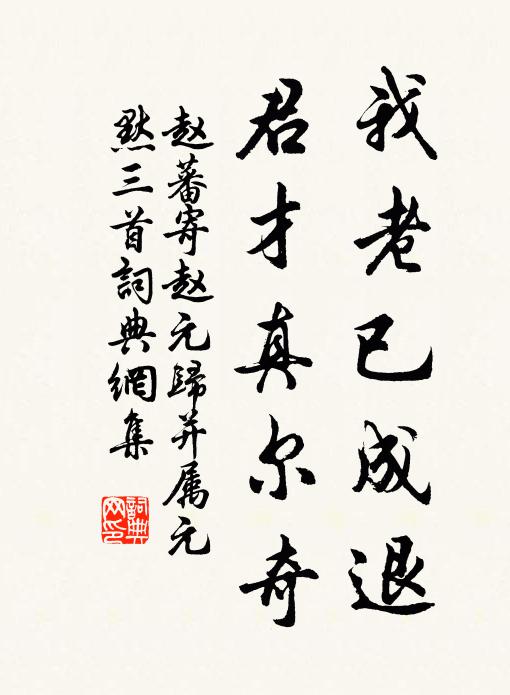 我老已成退
君才真尔奇
赵蕃寄赵元歸并属元
默三首詞典網集
詞典网印